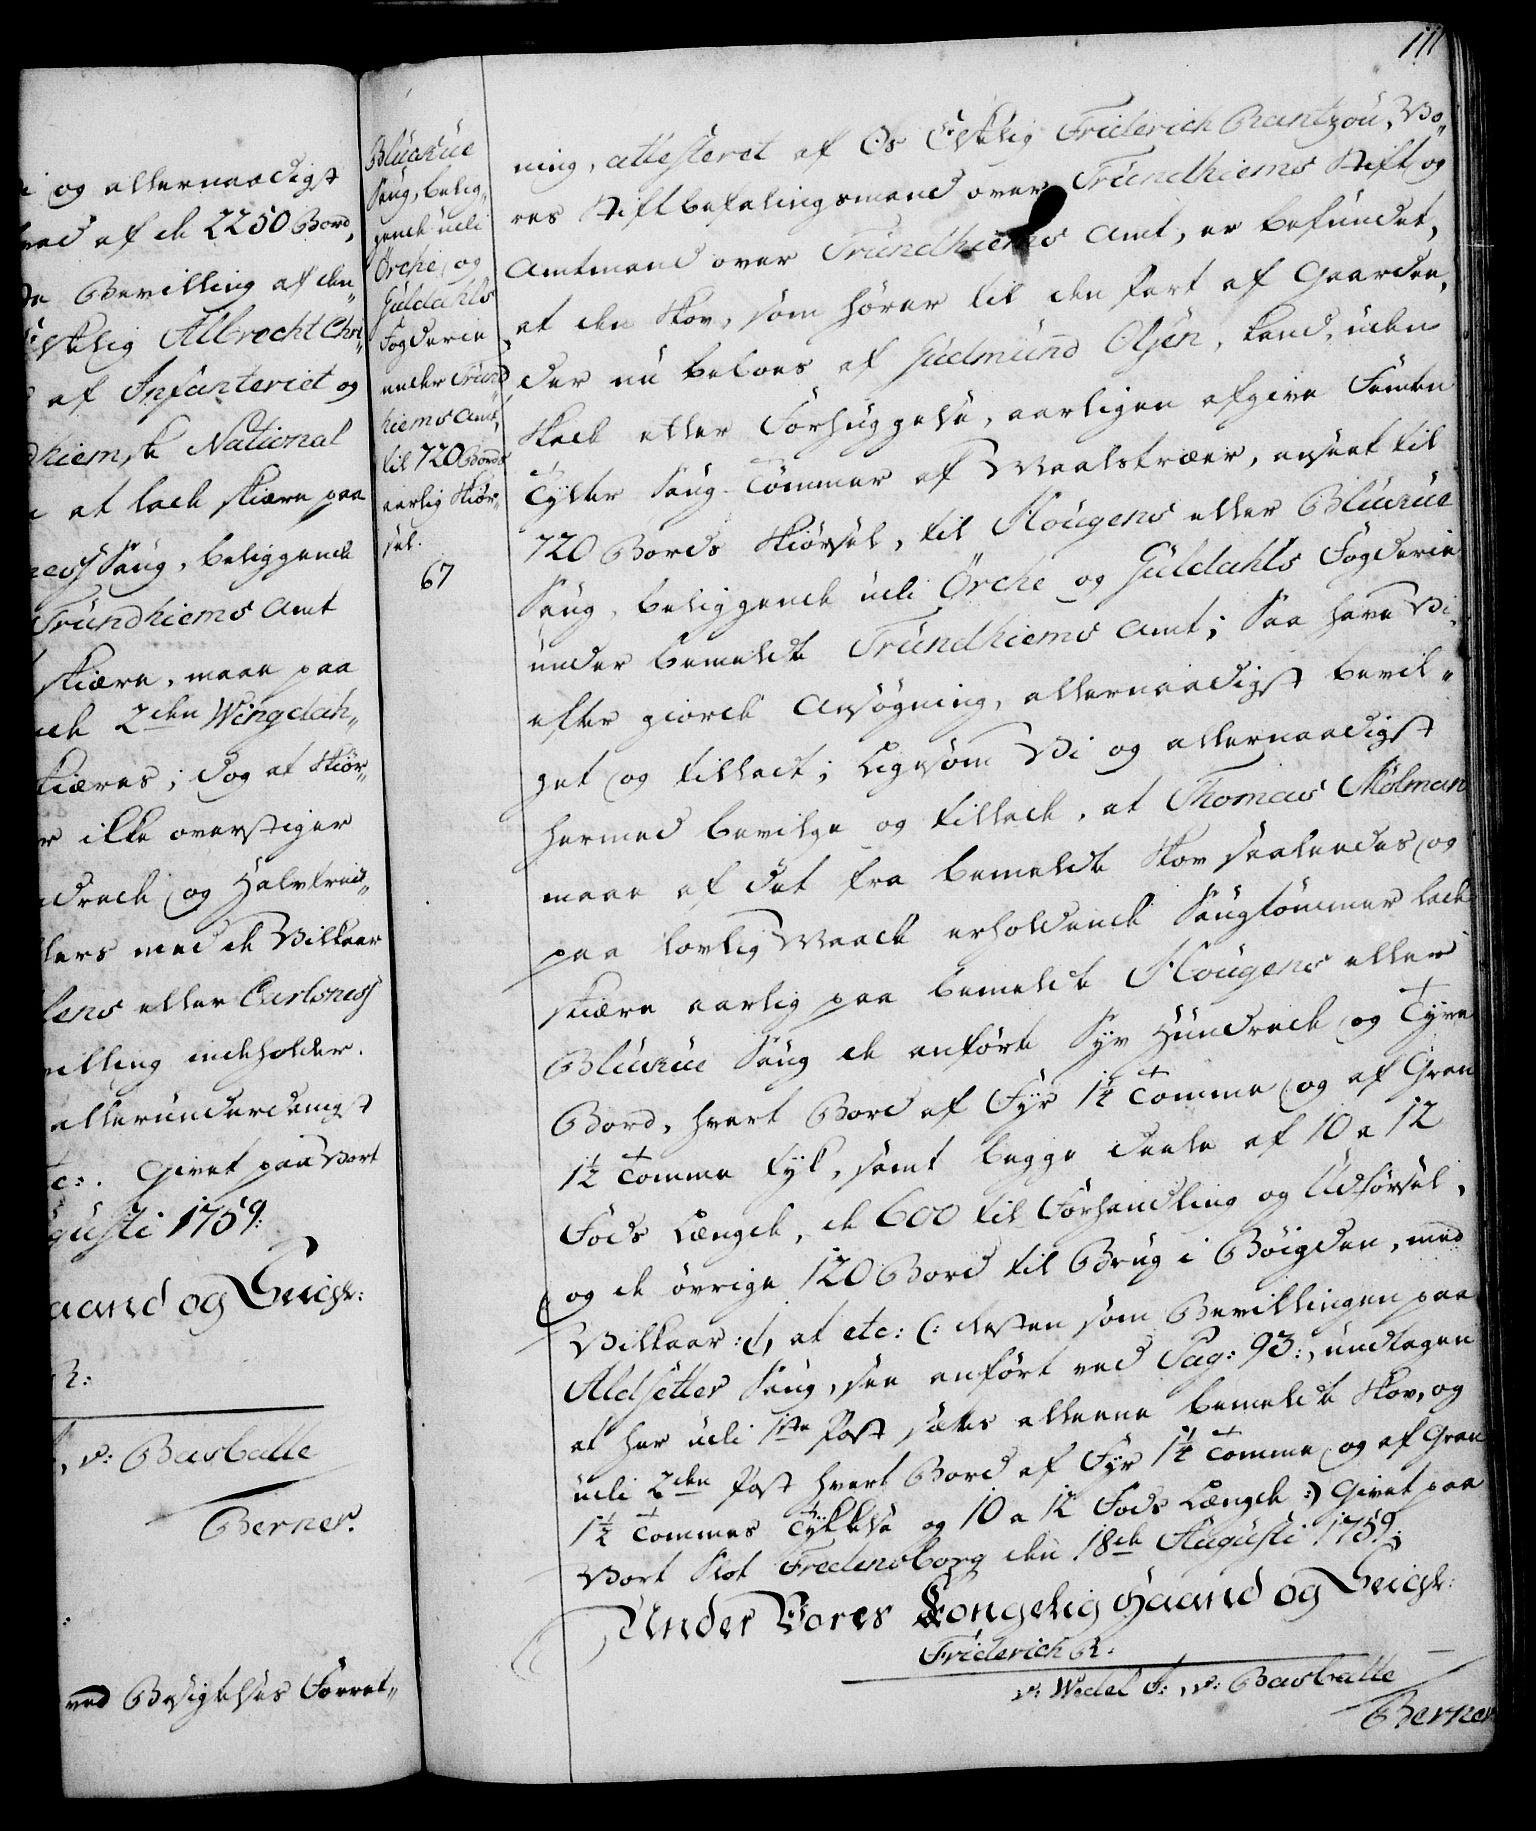 i og allernaadigst
ved af de 2250 Bord,
de Bevilling af den
Elskelig Albrecht Chri
af Infanteriet og
dhiemske National
at lade skiære paa
ness Saug, beliggende
Trundhiems Amt
skiære, maae paa
de 2den Wingdah„
skiæres; dog at Skiør„
er ikke overstiger
ndrede og Halvtreds„
lers med de Vilkaar
kens eller Carlsness
villing indeholder.
allerunderdanigst
tc:. Givet paa Vort
gusti 1759.
aand og Seigl:
R:
, v: Basballe
Berner.
ved Besigtelses Forret„
111
Bluxüe
Saug, belig„
gende udi
Örche og
Guldahls
Fogderie
under Trund
hiems Amt,
til 720 Bords
aarlig Skiør„
sel.
67
ning, attesteret af Os Elskelig Friderich Rantzou, Vo„
res Stiftbefalingsmand over Trundhiems Stift og
Amtmand over Trundhiems Amt, er befundet,
at den Skov, som hører til den Part af Gaarden,
der nu beboes af Gudmund Olsen, kand, uden
Skade eller Forhuggelse, aarligen afgive Femten
Tylter Saug-Tömmer af Maalstræer, anseet til
720 Bords Skiørsel, til Hougens eller Bluxüe
Saug, beliggende udi Örche og Guldahls Fogderie
under bemeldte Trundhiems Amt; Saa have Vi,
efter giorde Ansøgning, allernaadigst bevil„
get og tilladt; Ligesom Vi og allernaadigst
hermed bevilge og tillade, at Thomas Mølman
maae af det fra bemeldte Skov saaledes og
paa lovlig Maade erholdende Saugtømmer lade
skiære aarlig paa bemeldte Hougens eller
Bluxüe Saug de anførte Syv Hundrede og Tyve
Bord, hvert Bord af Fyr 1¼ Tomme og af Gran
1½ Tomme tyk, samt begge Deele af 10 a 12
Fods Længde, de 600 til Forhandling og Udførsel,
og de øvrige 120 Bord til Brug i Bøigden, med
Vilkaar: 1, at etc: (: resten som Bevillingen paa
Aldsetter Saug, see anført ved Pag: 93:, undtagen
at her udi 1ste Post sættes alleene bemeldte Skov, og
udi 2den Post hvert Bord af Fyr 1¼ Tomme og af Gran
1½ Tommes Tykkelse og 10 a 12 Fods Længde :) Givet paa
Vort Slot Fredensborg den 18de Augusti 1759.
Under Vores Kongelig Haand og Seigl:
Friderich R.
v: Wedel F:, v: Basballe
Berner